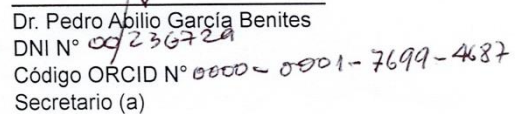 Dr. Pedro Abilio García Benites
DNI N° 00236729
Código ORCID N° 0000-0001-7699-4687
Secretario (a)